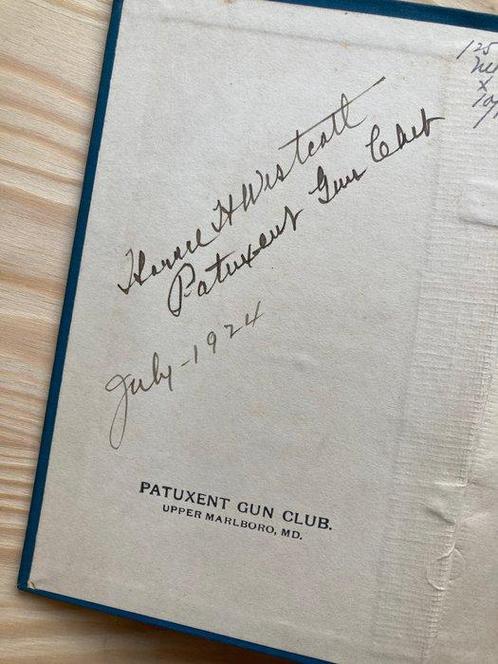 Horace H Westcott
Patuxent Gun Club
July - 1924
PATUXENT GUN CLUB.
UPPER MARLBORO, MD.
125
x